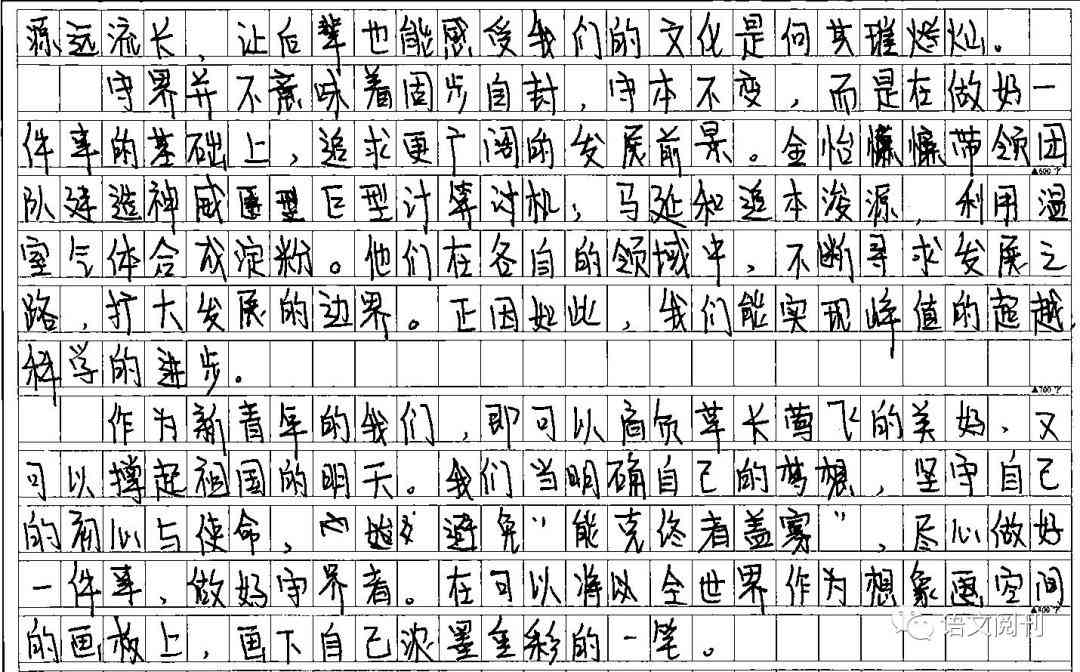 源远流长，让后辈也能感受我们的文化是何其璀灿。
守界并不意味着固步自封，守本不变，而是在做好一
件事的基础上，追求更广阔的发展前景。金怡濂带领团
▲600字
队建造神威巨型计算计机；马延和追本浚源，利用温
室气体合成淀粉。他们在各自的领域中，不断寻求发展之
路，扩大发展的边界。正因如此，我们能实现峰值的超越，
科学的进步。
▲700字
作为新青年的我们，即可以肩负草长莺飞的美好，又
可以撑起祖国的明天。我们当明确自己的梦想，坚守自己
的初心与使命，避免“能克终者盖寡”，尽心做好
一件事，做好守界者。在可以将以全世界作为想象画空间
▲800字
的画板上，画下自己浓墨重彩的一笔。
语文阅刊